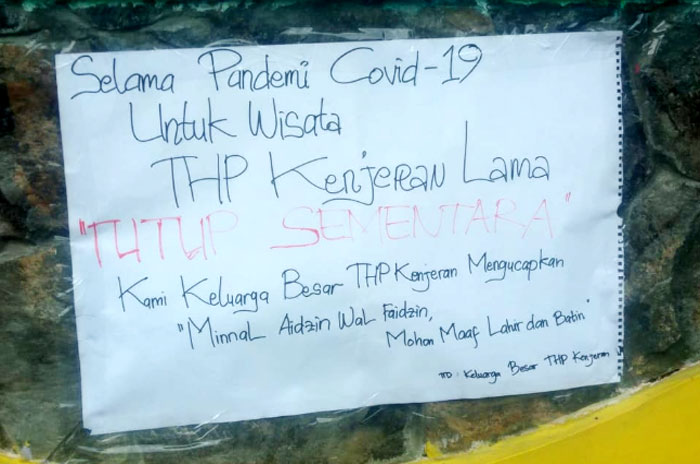 Selama Pandemi Covid-19
Untuk Wisata
THP Kenjeran Lama
"TUTUP SEMENTARA"
Kami Keluarga Besar THP Kenjeran Mengucapkan
"Minnal Aidzin Wal Faidzin,
Mohon Maaf Lahir dan Batin"
TTD : Keluarga Besar THP Kenjeran